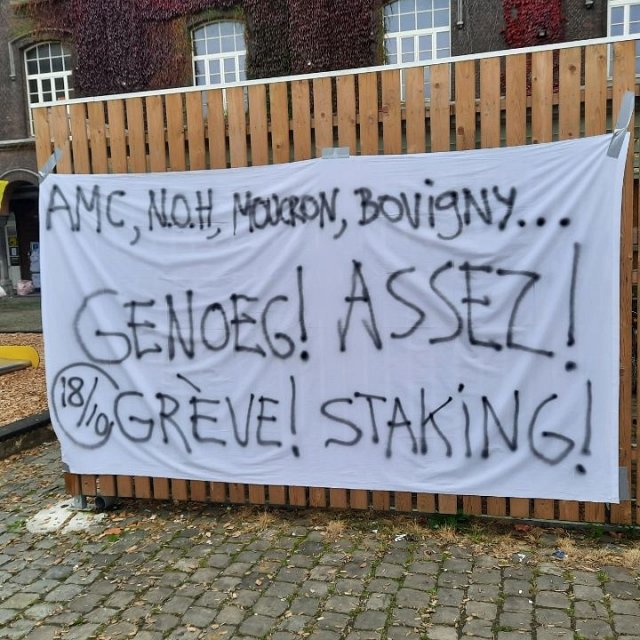 AMC, N.O.H, MOUCRON, BOVIGNY...
GENOEG! ASSEZ!
18/10 GRÈVE! STAKING!